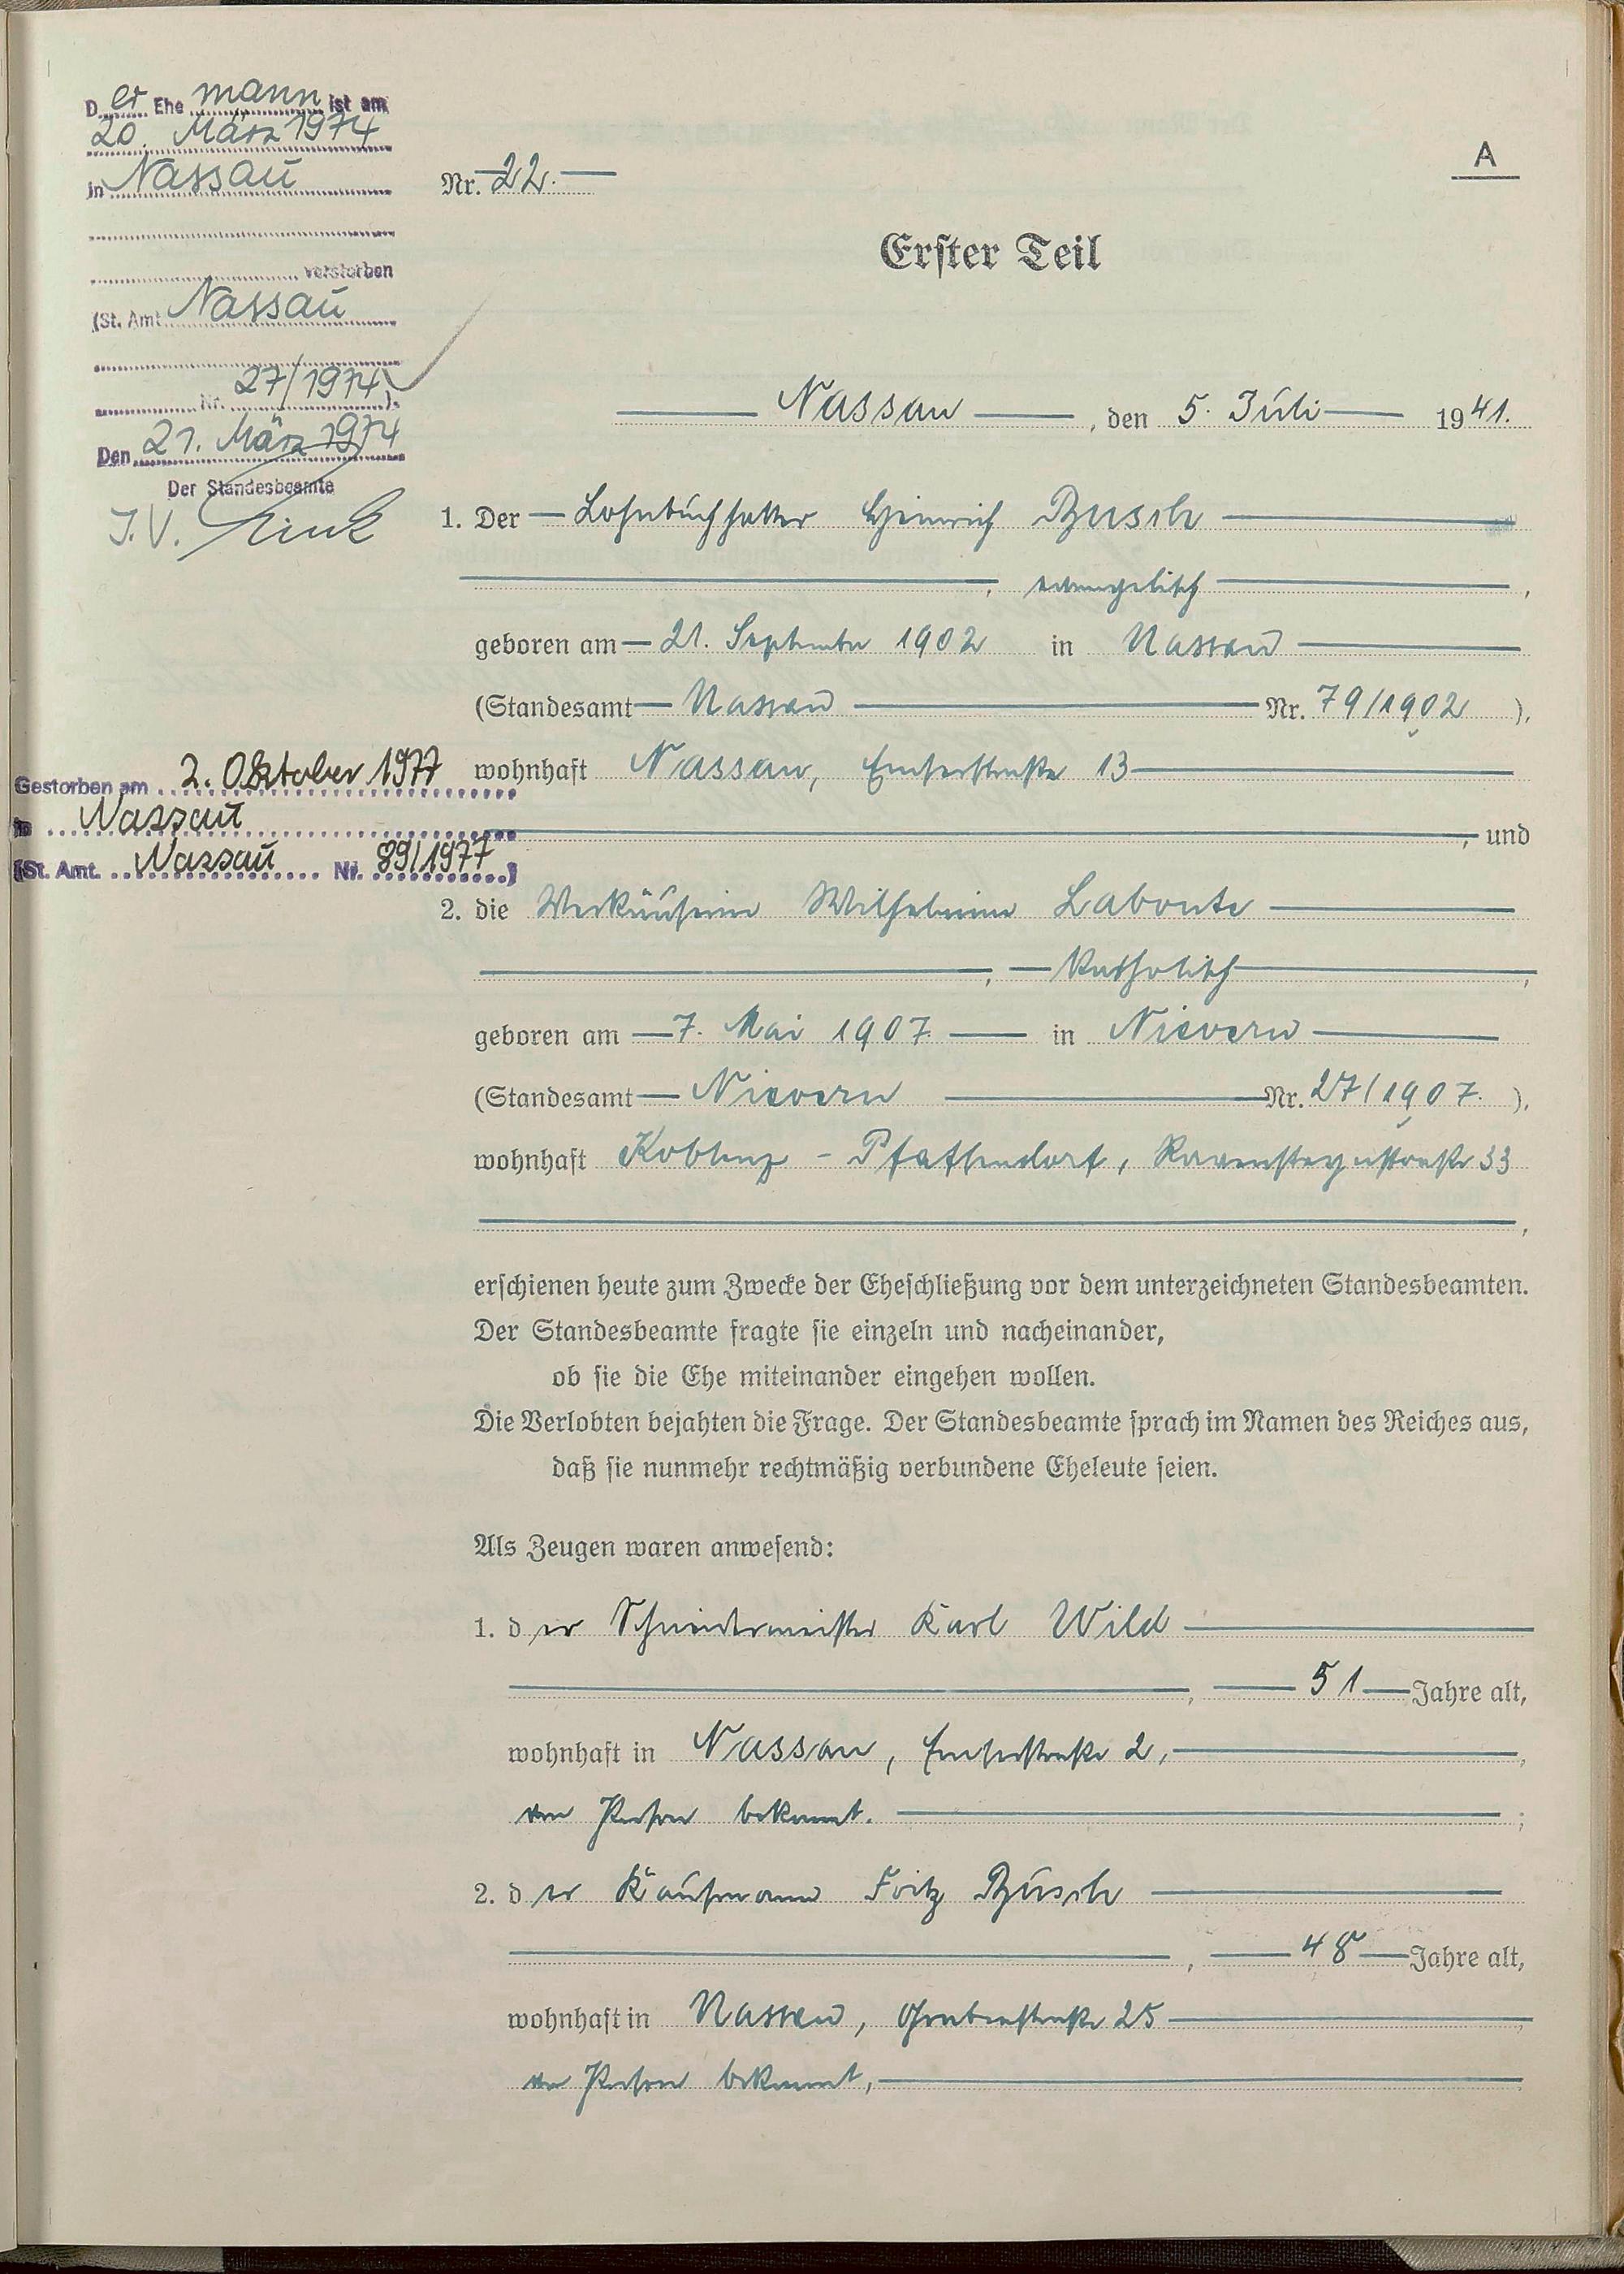 D er Ehe mann ist am
20. März 1974
in Nassau
verstorben
(St. Amt Nassau
Nr. 27/1974).
Den 21. März 1974
Der Standesbeamte
J.V.
Gestorben am 2. Oktober 1977
in Nassau
(St. Amt. Nassau Nr. 89/1977)
A
Nr. 22.
Erster Teil
Nassau, den 5. Juli 1941.
1. Der Lohnbuchhalter Heinrich Busch
, evangelisch,
geboren am 21. September 1902 in Nassau
(Standesamt Nassau Nr. 79/1902),
wohnhaft Nassau, Emserstraße 13
, und
2. die Verkäuferin Wilhelmine Labonte
, katholisch,
geboren am 7. Mai 1907 in Nievern
(Standesamt Nievern Nr. 27/1907.),
wohnhaft Koblenz - Pfaffendorf, Ravensteynstraße 33
,
erschienen heute zum Zwecke der Eheschließung vor dem unterzeichneten Standesbeamten.
Der Standesbeamte fragte sie einzeln und nacheinander,
ob sie die Ehe miteinander eingehen wollen.
Die Verlobten bejahten die Frage. Der Standesbeamte sprach im Namen des Reiches aus,
daß sie nunmehr rechtmäßig verbundene Eheleute seien.
Als Zeugen waren anwesend:
1. d er Schneidermeister Karl Wild
, 51 Jahre alt,
wohnhaft in Nassau, Emserstraße 2,
von Person bekannt. ;
2. d er Kaufmann Fritz Busch
, 48 Jahre alt,
wohnhaft in Nassau, Grabenstraße 25
von Person bekannt,